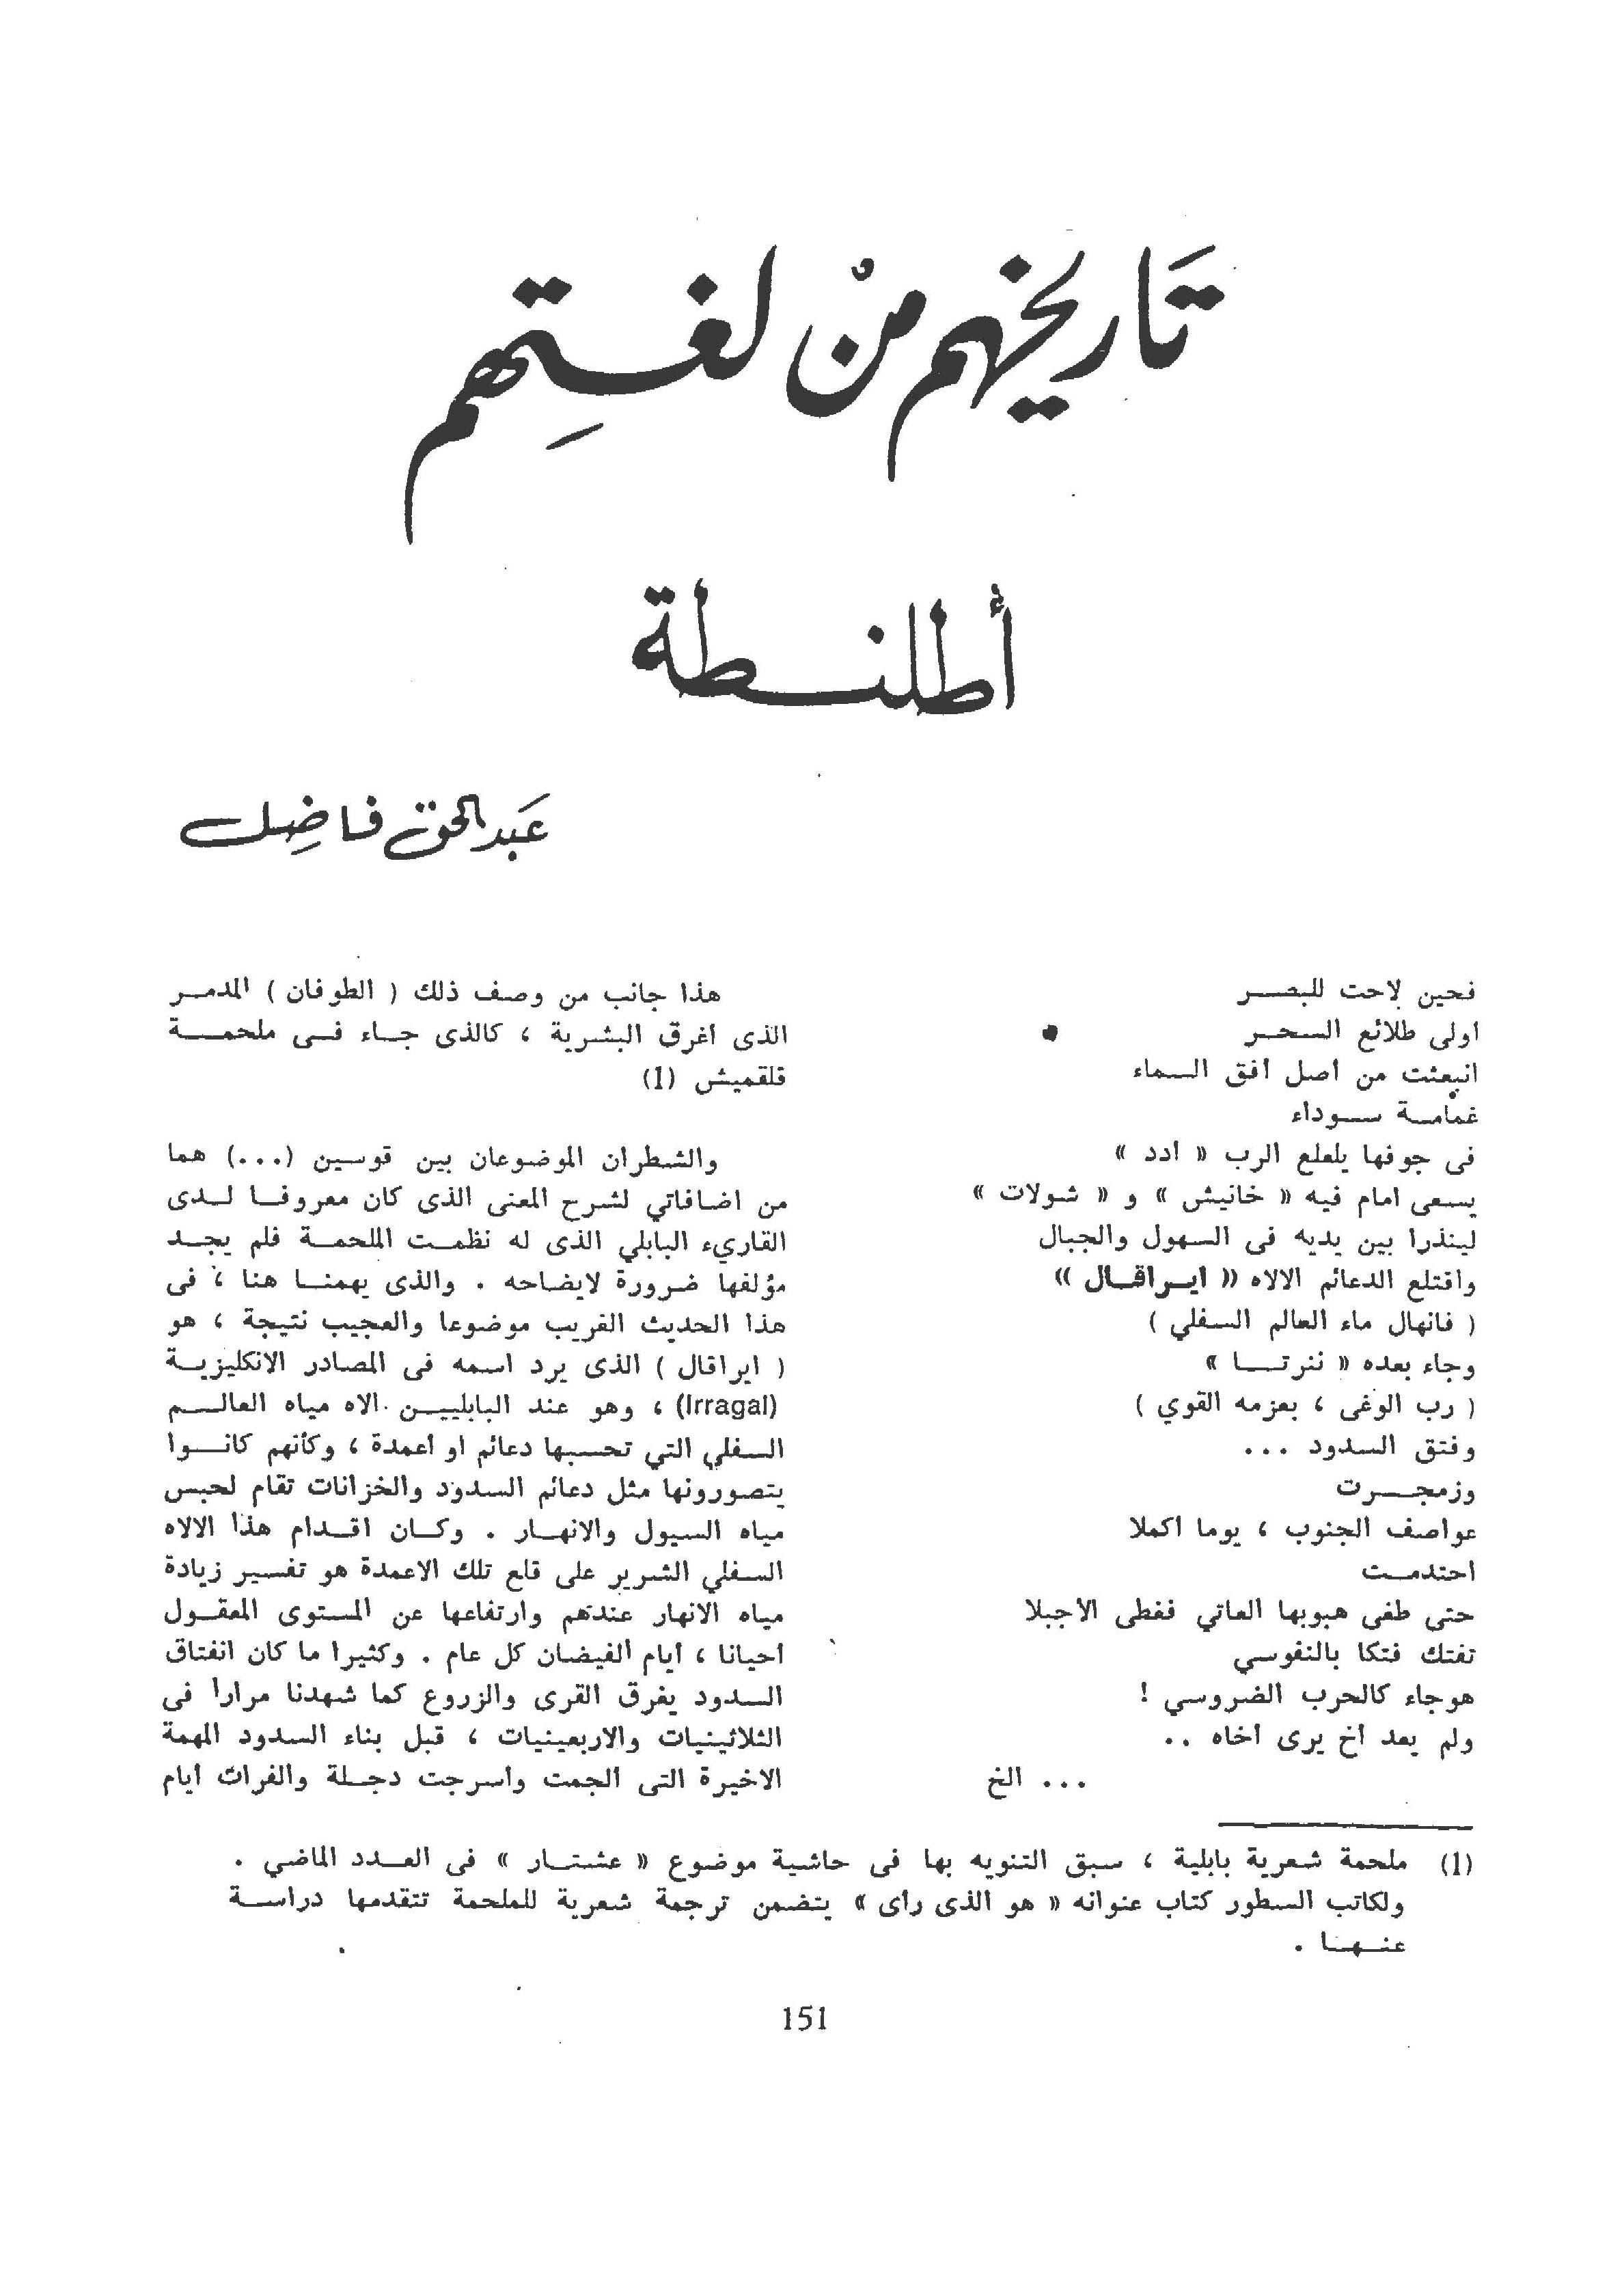 تَاريخهم منْ لغستِهم
أطلنطة
عَبد الحق فاضِل
فحين لاحت للبصر
اولى طلائع السحر
انبعثت من أصل أفق السماء
غمامة سوداء
فى جوفها يلعلع الرب « أدد »
يسعى امام فيه « خانيش » و « شولات »
لينذرا بين يديه فى السهول والجبال
واقتلع الدعائم الالاه « ايراقال »
( فانهال ماء العالم السفلي )
وجاء بعده « ننرتا »
( رب الوغى ، بعزمه القوي )
وفتق السدود ...
وزمجرت
عواصف الجنوب ، يوما اكملا
احتدمت
حتى طغى هبوبها العاتي فغطى الاجبلا
تفتك فتكا بالنفوسي
هوجاء كالحرب الضروسي !
ولم يعد أخ يرى أخاه ..
... الخ
هذا جانب من وصف ذلك ( الطوفان ) المدمر
الذى أغرق البشرية ، كالذى جاء فى ملحمة
قلقميش (1)
والشطران الموضوعان بين قوسين (...) هما
من اضافاتي لشرح المعنى الذى كان معروفا لدى
القاريء البابلي الذى له نظمت الملحمة فلم يجد
مؤلفها ضرورة لايضاحه . والذى يهمنا هنا ، فى
هذا الحديث الغريب موضوعا والعجيب نتيجة ، هو
( ايراقال ) الذى يرد اسمه فى المصادر الانكليزية
(Irragal) ، وهو عند البابليين الاه مياه العالم
السفلي التي تحسبها دعائم او أعمدة ، وكأنهم كانوا
يتصورونها مثل دعائم السدود والخزانات تقام لحبس
مياه السيول والانهار . وكان اقدام هذا الالاه
السفلي الشرير على قلع تلك الاعمدة هو تفسير زيادة
مياه الانهار عندهم وارتفاعها عن المستوى المعقول
أحيانا ، أيام الفيضان كل عام . وكثيرا ما كان انفتاق
السدود يغرق القرى والزروع كما شهدنا مرارا فى
الثلاثينيات والاربعينيات ، قبل بناء السدود المهمة
الاخيرة التى ألجمت وأسرجت دجلة والفرات أيام
(1) ملحمة شعرية بابلية ، سبق التنويه بها فى حاشية موضوع « عشتار » فى العدد الماضي .
ولكاتب السطور كتاب عنوانه « هو الذى رأى » يتضمن ترجمة شعرية للملحمة تتقدمها دراسة
عنها .
151